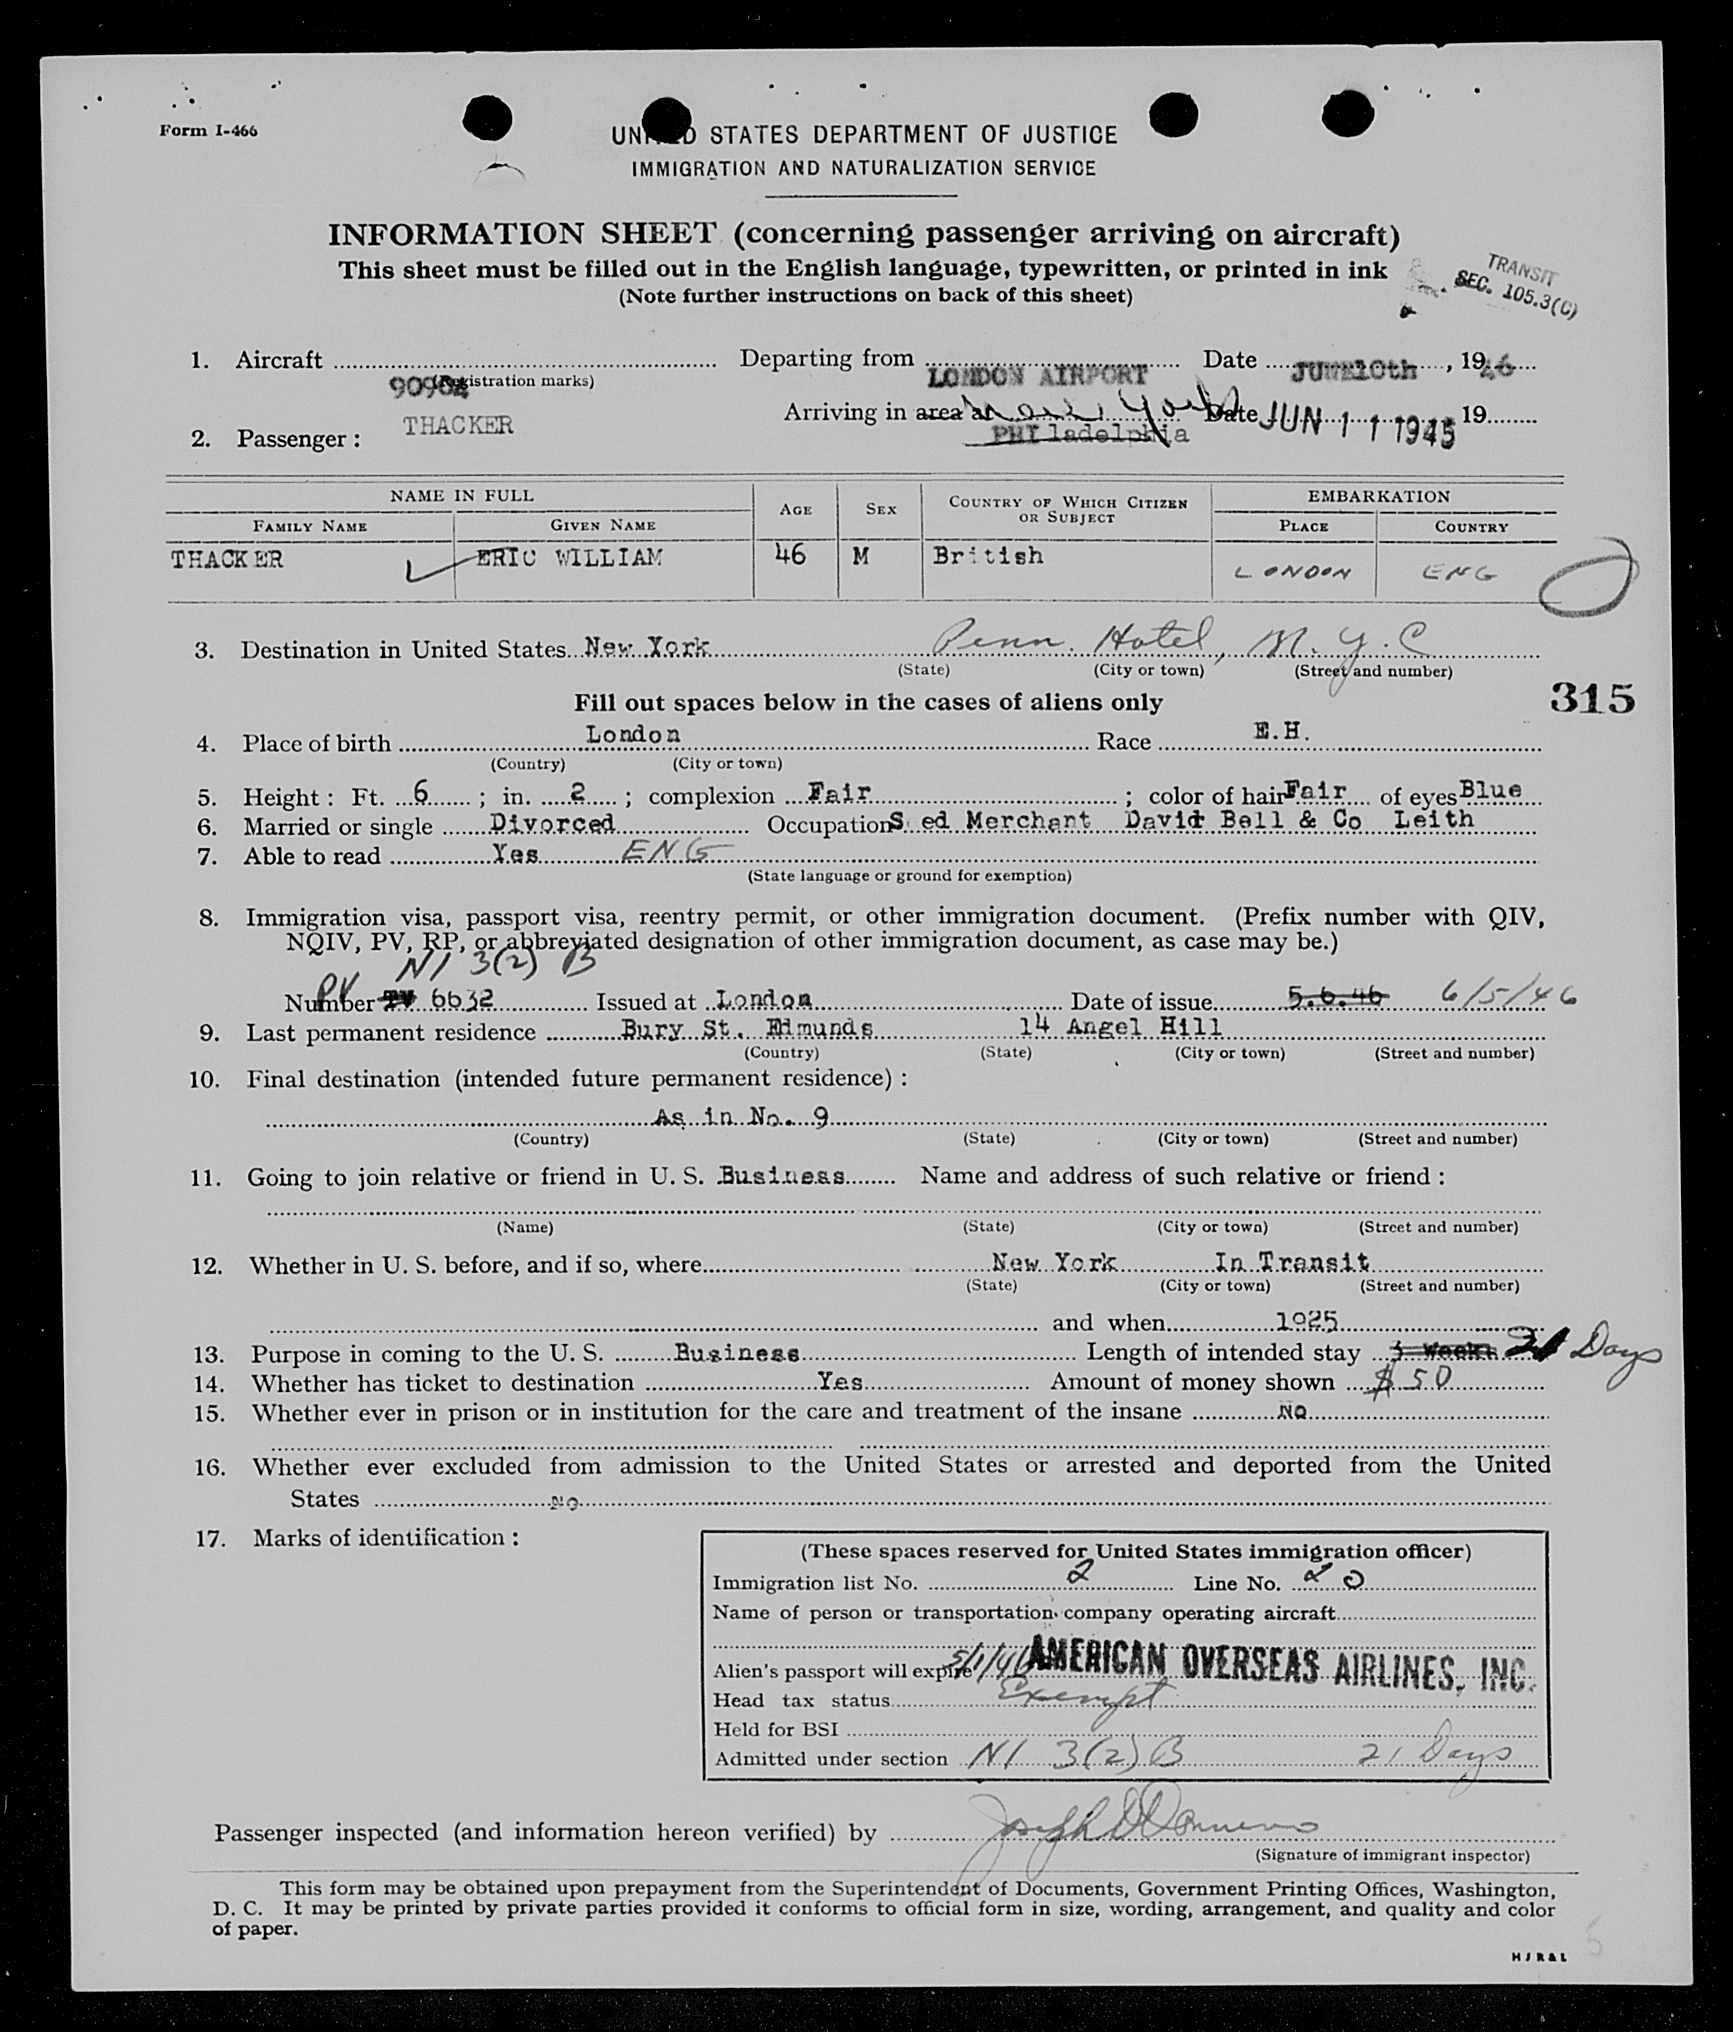 Form I-466
UNITED STATES DEPARTMENT OF JUSTICE
IMMIGRATION AND NATURALIZATION SERVICE
INFORMATION SHEET (concerning passenger arriving on aircraft)
This sheet must be filled out in the English language, typewritten, or printed in ink
(Note further instructions on back of this sheet)
TRANSIT
SEC. 105.3(C)
1. Aircraft Departing from LONDON AIRPORT Date JUNE 10th, 1946
(Registration marks)
Arriving in area at New York Date JUN 11 1945 19
PHIladelphia
2. Passenger: THACKER
NAME IN FULL AGE SEX COUNTRY OF WHICH CITIZEN OR SUBJECT EMBARKATION
FAMILY NAME GIVEN NAME PLACE COUNTRY
THACKER ERIC WILLIAM 46 M British LONDON ENG
3. Destination in United States New York Penn. Hotel, N.Y.C
(State) (City or town) (Street and number)
Fill out spaces below in the cases of aliens only
315
4. Place of birth London Race E.H.
(Country) (City or town)
5. Height: Ft. 6; in. 2; complexion Fair; color of hair Fair of eyes Blue
6. Married or single Divorced Occupation Seed Merchant David Bell & Co Leith
7. Able to read Yes ENG
(State language or ground for exemption)
8. Immigration visa, passport visa, reentry permit, or other immigration document. (Prefix number with QIV,
NQIV, PV, RP, or abbreviated designation of other immigration document, as case may be.)
NI 3(2) B
Number PV 6632 Issued at London Date of issue 5.6.46 6/5/46
9. Last permanent residence Bury St. Edmunds 14 Angel Hill
(Country) (State) (City or town) (Street and number)
10. Final destination (intended future permanent residence):
As in No. 9
(Country) (State) (City or town) (Street and number)
11. Going to join relative or friend in U. S. Business Name and address of such relative or friend:
(Name) (State) (City or town) (Street and number)
12. Whether in U. S. before, and if so, where New York In Transit
(State) (City or town) (Street and number)
and when 1925
13. Purpose in coming to the U. S. Business Length of intended stay 3 Weeks 21 Days
14. Whether has ticket to destination Yes Amount of money shown $50
15. Whether ever in prison or in institution for the care and treatment of the insane NO
16. Whether ever excluded from admission to the United States or arrested and deported from the United
States No
17. Marks of identification:
(These spaces reserved for United States immigration officer)
Immigration list No. 2 Line No. 20
Name of person or transportation company operating aircraft
AMERICAN OVERSEAS AIRLINES, INC.
Alien's passport will expire
Head tax status Exempt
Held for BSI
Admitted under section NI 3(2) B 21 Days
Passenger inspected (and information hereon verified) by
(Signature of immigrant inspector)
This form may be obtained upon prepayment from the Superintendent of Documents, Government Printing Offices, Washington,
D. C. It may be printed by private parties provided it conforms to official form in size, wording, arrangement, and quality and color
of paper.
HJR&L